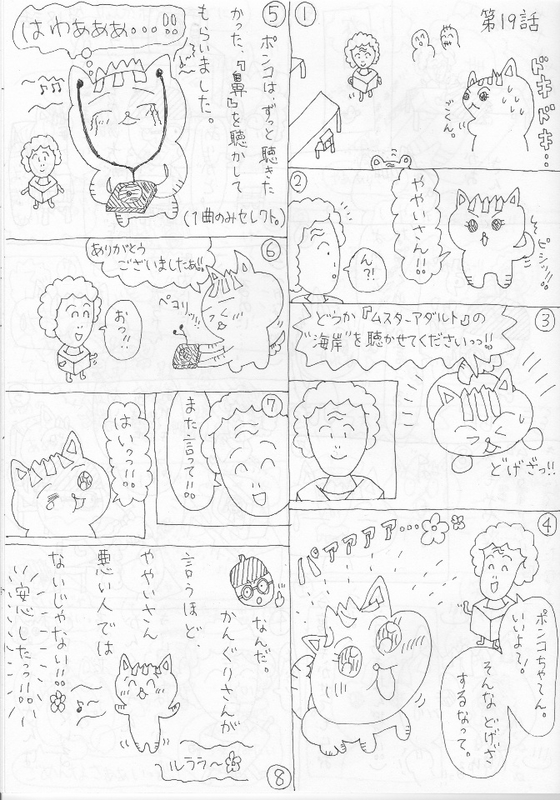 第19話
①
ドキドキ…
ごくん。
②
ややいさん!!
ピシッ!!
ん?!
③
どうか『ムスターアダルト』の
"海岸"を聴かせてくださいっっ!!
どげざっ!!
④
ポンコちゃん。
いいよて!。
そんなどげざ
するなって。
パァァァァ…
⑤
ポンコは、ずっと聴きた
かった、『鼻』を聴かして
もらいました。
(1曲のみセレクト。)
はわぁあぁ…!!
⑥
ありがとう
ございましたぁ!!
ペコリッ!!
おっ!!
⑦
また言って!!。
はいっっ!!。
⑧
なんだ。
かんぐりさんが
言うほど、
ややいさん
悪い人では
ないじゃない!!。
安心したっっ!!。
ルララ〜